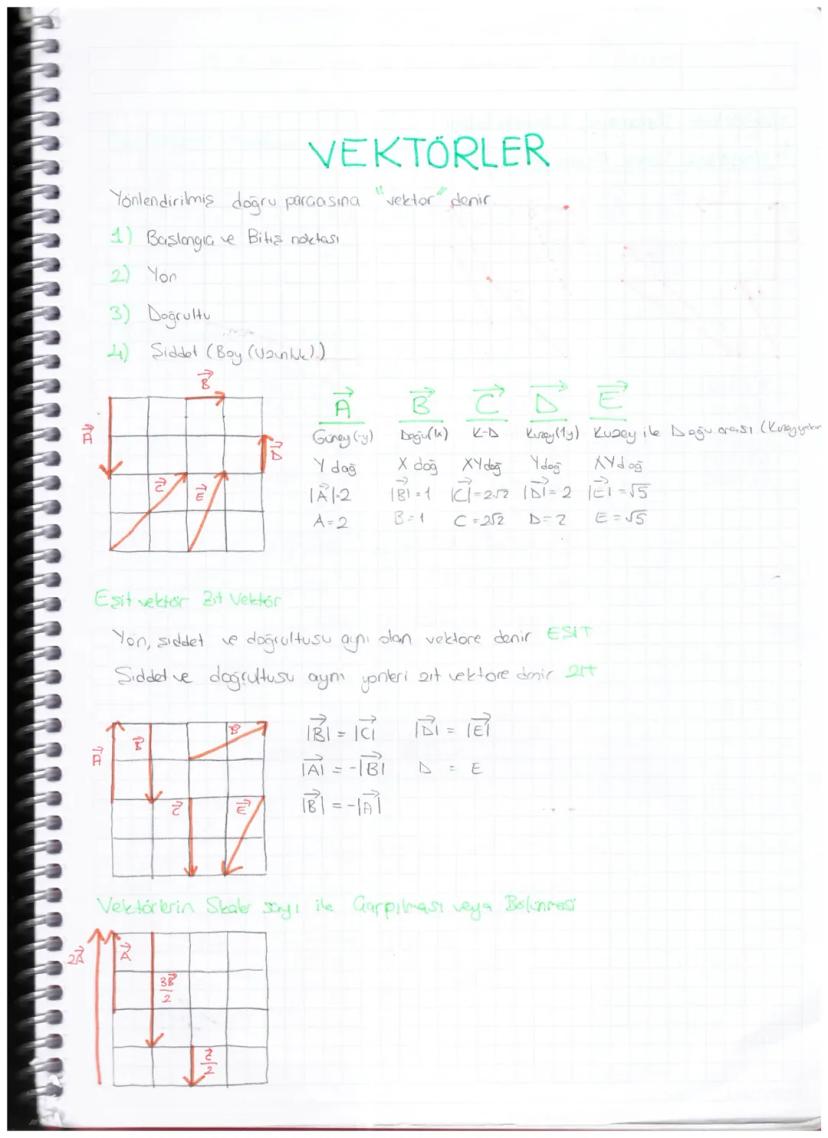 VEKTÖRLER
Yönlendirilmiş doğru parçasına "vektör" denir
1) Başlangıç ve Bitiş noktası
2) Yön
3) Doğrultu
4) Şiddet (Boy (Uzunluk).)
B
A
D
C
E
A B C D E
Güney(-y) Doğu(+x) K-D Kuzey(+y) Kuzey ile Doğu arası
Y doğ X doğ XY doğ Y doğ XY doğ
|A|=2 |B|=1 |C|=2√2 |D|=2 |E|=√5
A=2 B=1 C=2√2 D=2 E=√5
Eşit vektör Zıt Vektör
Yön, şiddet ve doğrultusu aynı olan vektöre denir EŞİT
Şiddet ve doğrultusu aynı yönleri zıt vektöre denir ZIT
A
B
B
C
E
|B| = |C| |D| = |E|
|A| = -|B| D = E
|B| = -|A|
Vektörlerin Skaler sayı ile Çarpılması veya Bölünmesi
2A
A
3B
2
C
2